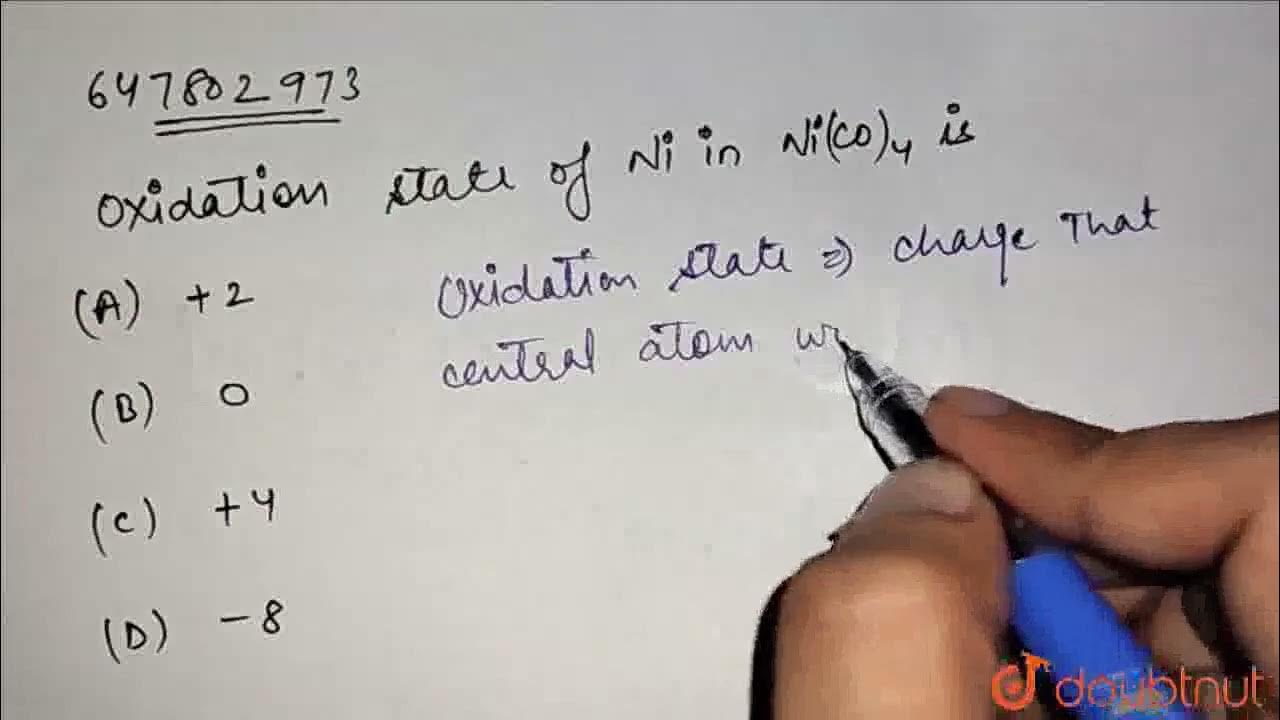 647802973
Oxidation state of Ni in Ni(CO)4 is
(A) +2
(B) 0
(C) +4
(D) -8
Oxidation state ⇒ charge That
central atom
doubtnut